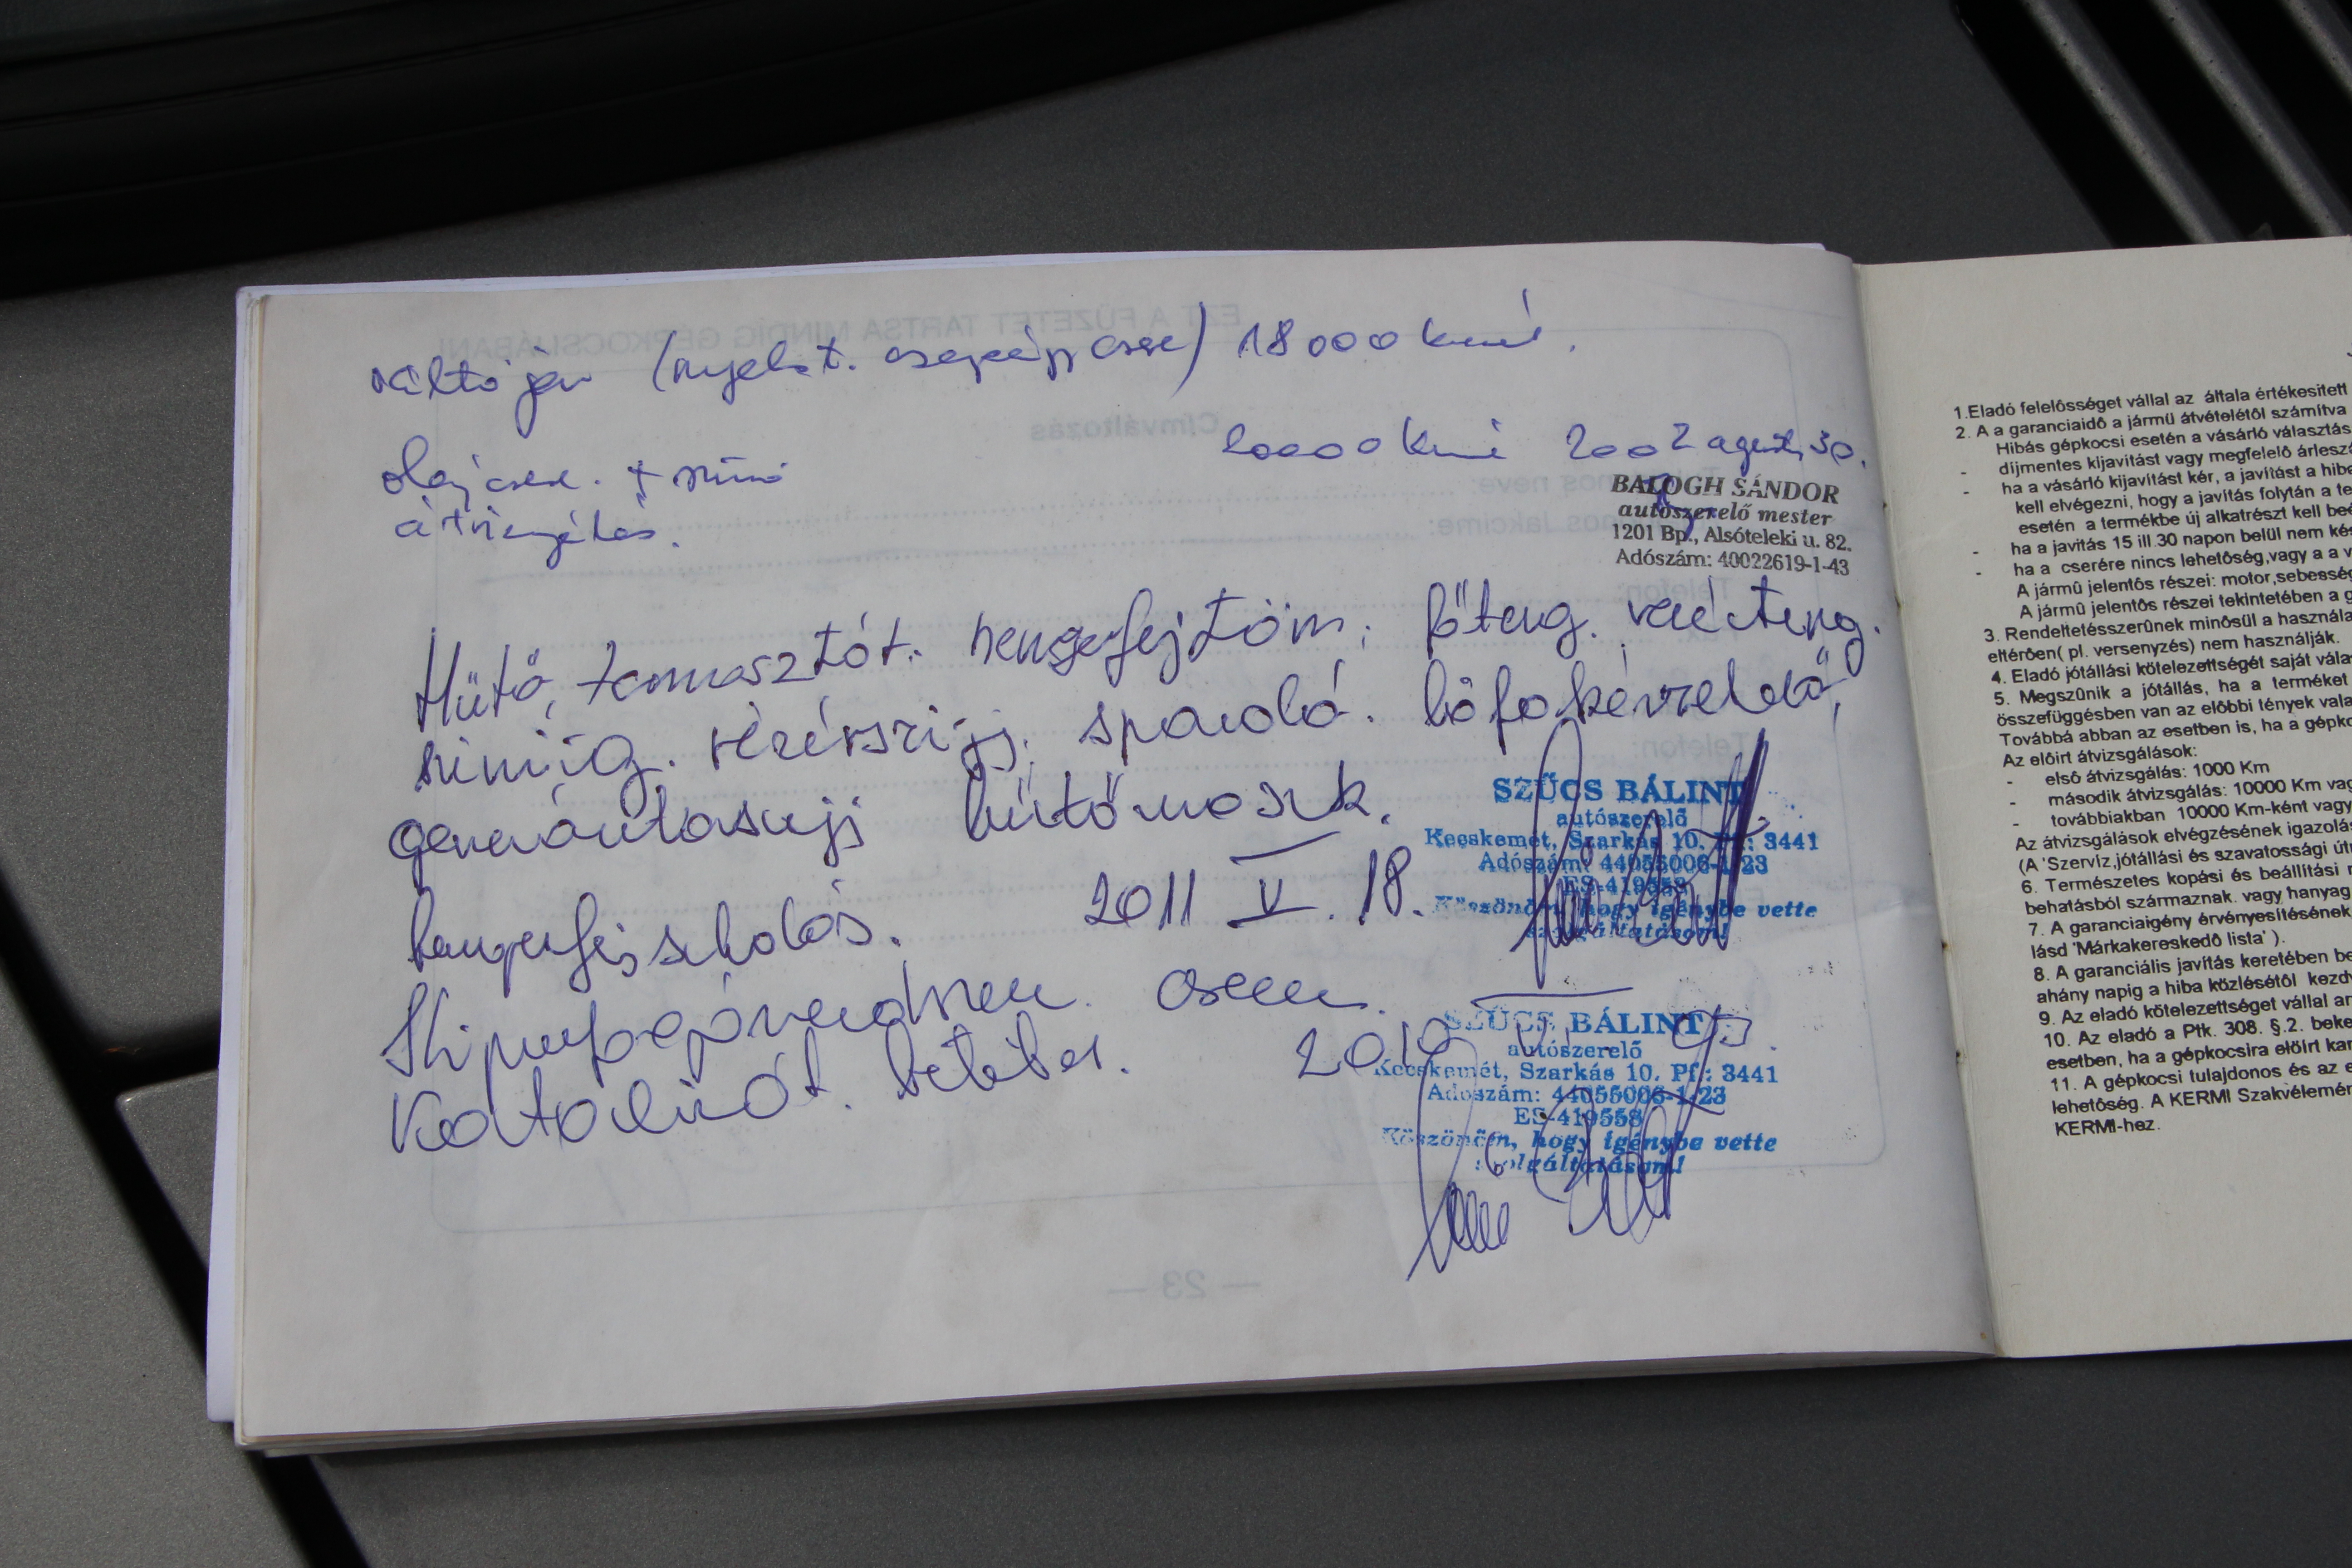 váltó jav (nyelest. csapágy csere) 18000 kmnél.
olajcsere. + szűrő
átvizsgálás.
20000 kmné 2002 aguszt. 30.
BALOGH SÁNDOR
autószerelő mester
1201 Bp., Alsóteleki u. 82.
Adószám: 40022619-1-43
Hűtő, termosztát. hengerfejtöm; főteng. vezécsteng.
szimmig. vezérszíj; hőfokérzékelő,
generátorszíj hűtőmosk.
hengerfej síkolás. 2011 V. 18.
SZŰCS BÁLINT
autószerelő
Kecskemét, Szarkás 10. Pf.: 3441
Adószám: 44055006-1-23
ES-419558
Köszönöm, hogy igénybe vette
szolgáltatásom!
Kipufogórendszer. csere.
SZŰCS BÁLINT
autószerelő
Kecskemét, Szarkás 10. Pf.: 3441
Adószám: 44055006-1-23
ES-419558
Köszönöm, hogy igénybe vette
szolgáltatásom!
1.Eladó felelôsséget vállal az általa értékesített
2. A a garanciaidô a jármû átvételétôl számítva
Hibás gépkocsi esetén a vásárló választás
- díjmentes kijavítást vagy megfelelô árleszá
- ha a vásárló kijavítást kér, a javítást a hibe
kell elvégezni, hogy a javítás folytán a te
esetén a termékbe új alkatrészt kell beé
- ha a javitás 15 ill.30 napon belül nem kés
- ha a cserére nincs lehetôség,vagy a a v
A jármû jelentôs részei: motor,sebesség
A jármû jelentôs részei tekintetében a g
3. Rendeltetésszerûnek minôsül a használa
eltérôen( pl. versenyzés) nem használják.
4. Eladó jótállási kötelezettségét saját vála
5. Megszûnik a jótállás, ha a terméket
összefüggésben van az elôbbi tények vala
Továbbá abban az esetben is, ha a gépko
Az elôirt átvizsgálások:
- elsô átvizsgálás: 1000 Km
- második átvizsgálás: 10000 Km vag
- továbbiakban 10000 Km-ként vagy
Az átvizsgálások elvégzésének igazolás
(A 'Szervíz,jótállási és szavatossági út
6. Természetes kopási és beállítási
behatásból származnak. vagy hanyag
7. A garanciaigény érvényesítésének
lásd 'Márkakereskedô lista' ).
8. A garanciális javítás keretében be
ahány napig a hiba közlésétôl kezd
9. Az eladó kötelezettséget vállal ar
10. Az eladó a Ptk. 308. §.2. beke
esetben, ha a gépkocsira elôírt kar
11. A gépkocsi tulajdonos és az e
lehetôség. A KERMI Szakvélemén
KERMI-hez.